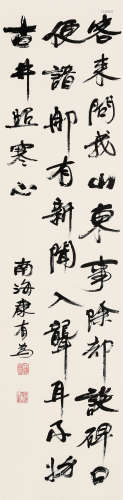 客來問我山東事除却談碑口
便諳那有新聞入聾耳
古井照寒心
南海康有為